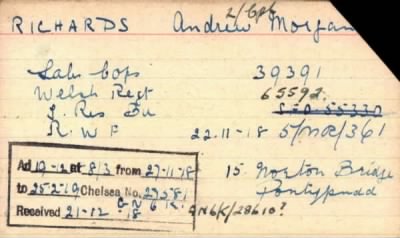 2/Cpl
RICHARDS Andrew Morgan
Lab. Cops 39391
Welsh Regt 65592
T. Res Bn
R.W.F 22-11-18 5/MR/361
Ad 19-12 at 8/3 from 27-11-18
to 25-2-19 Chelsea No. 27581
Received 21-12-18
15 Norton Bridge
Pontypridd
GN6K/28610?